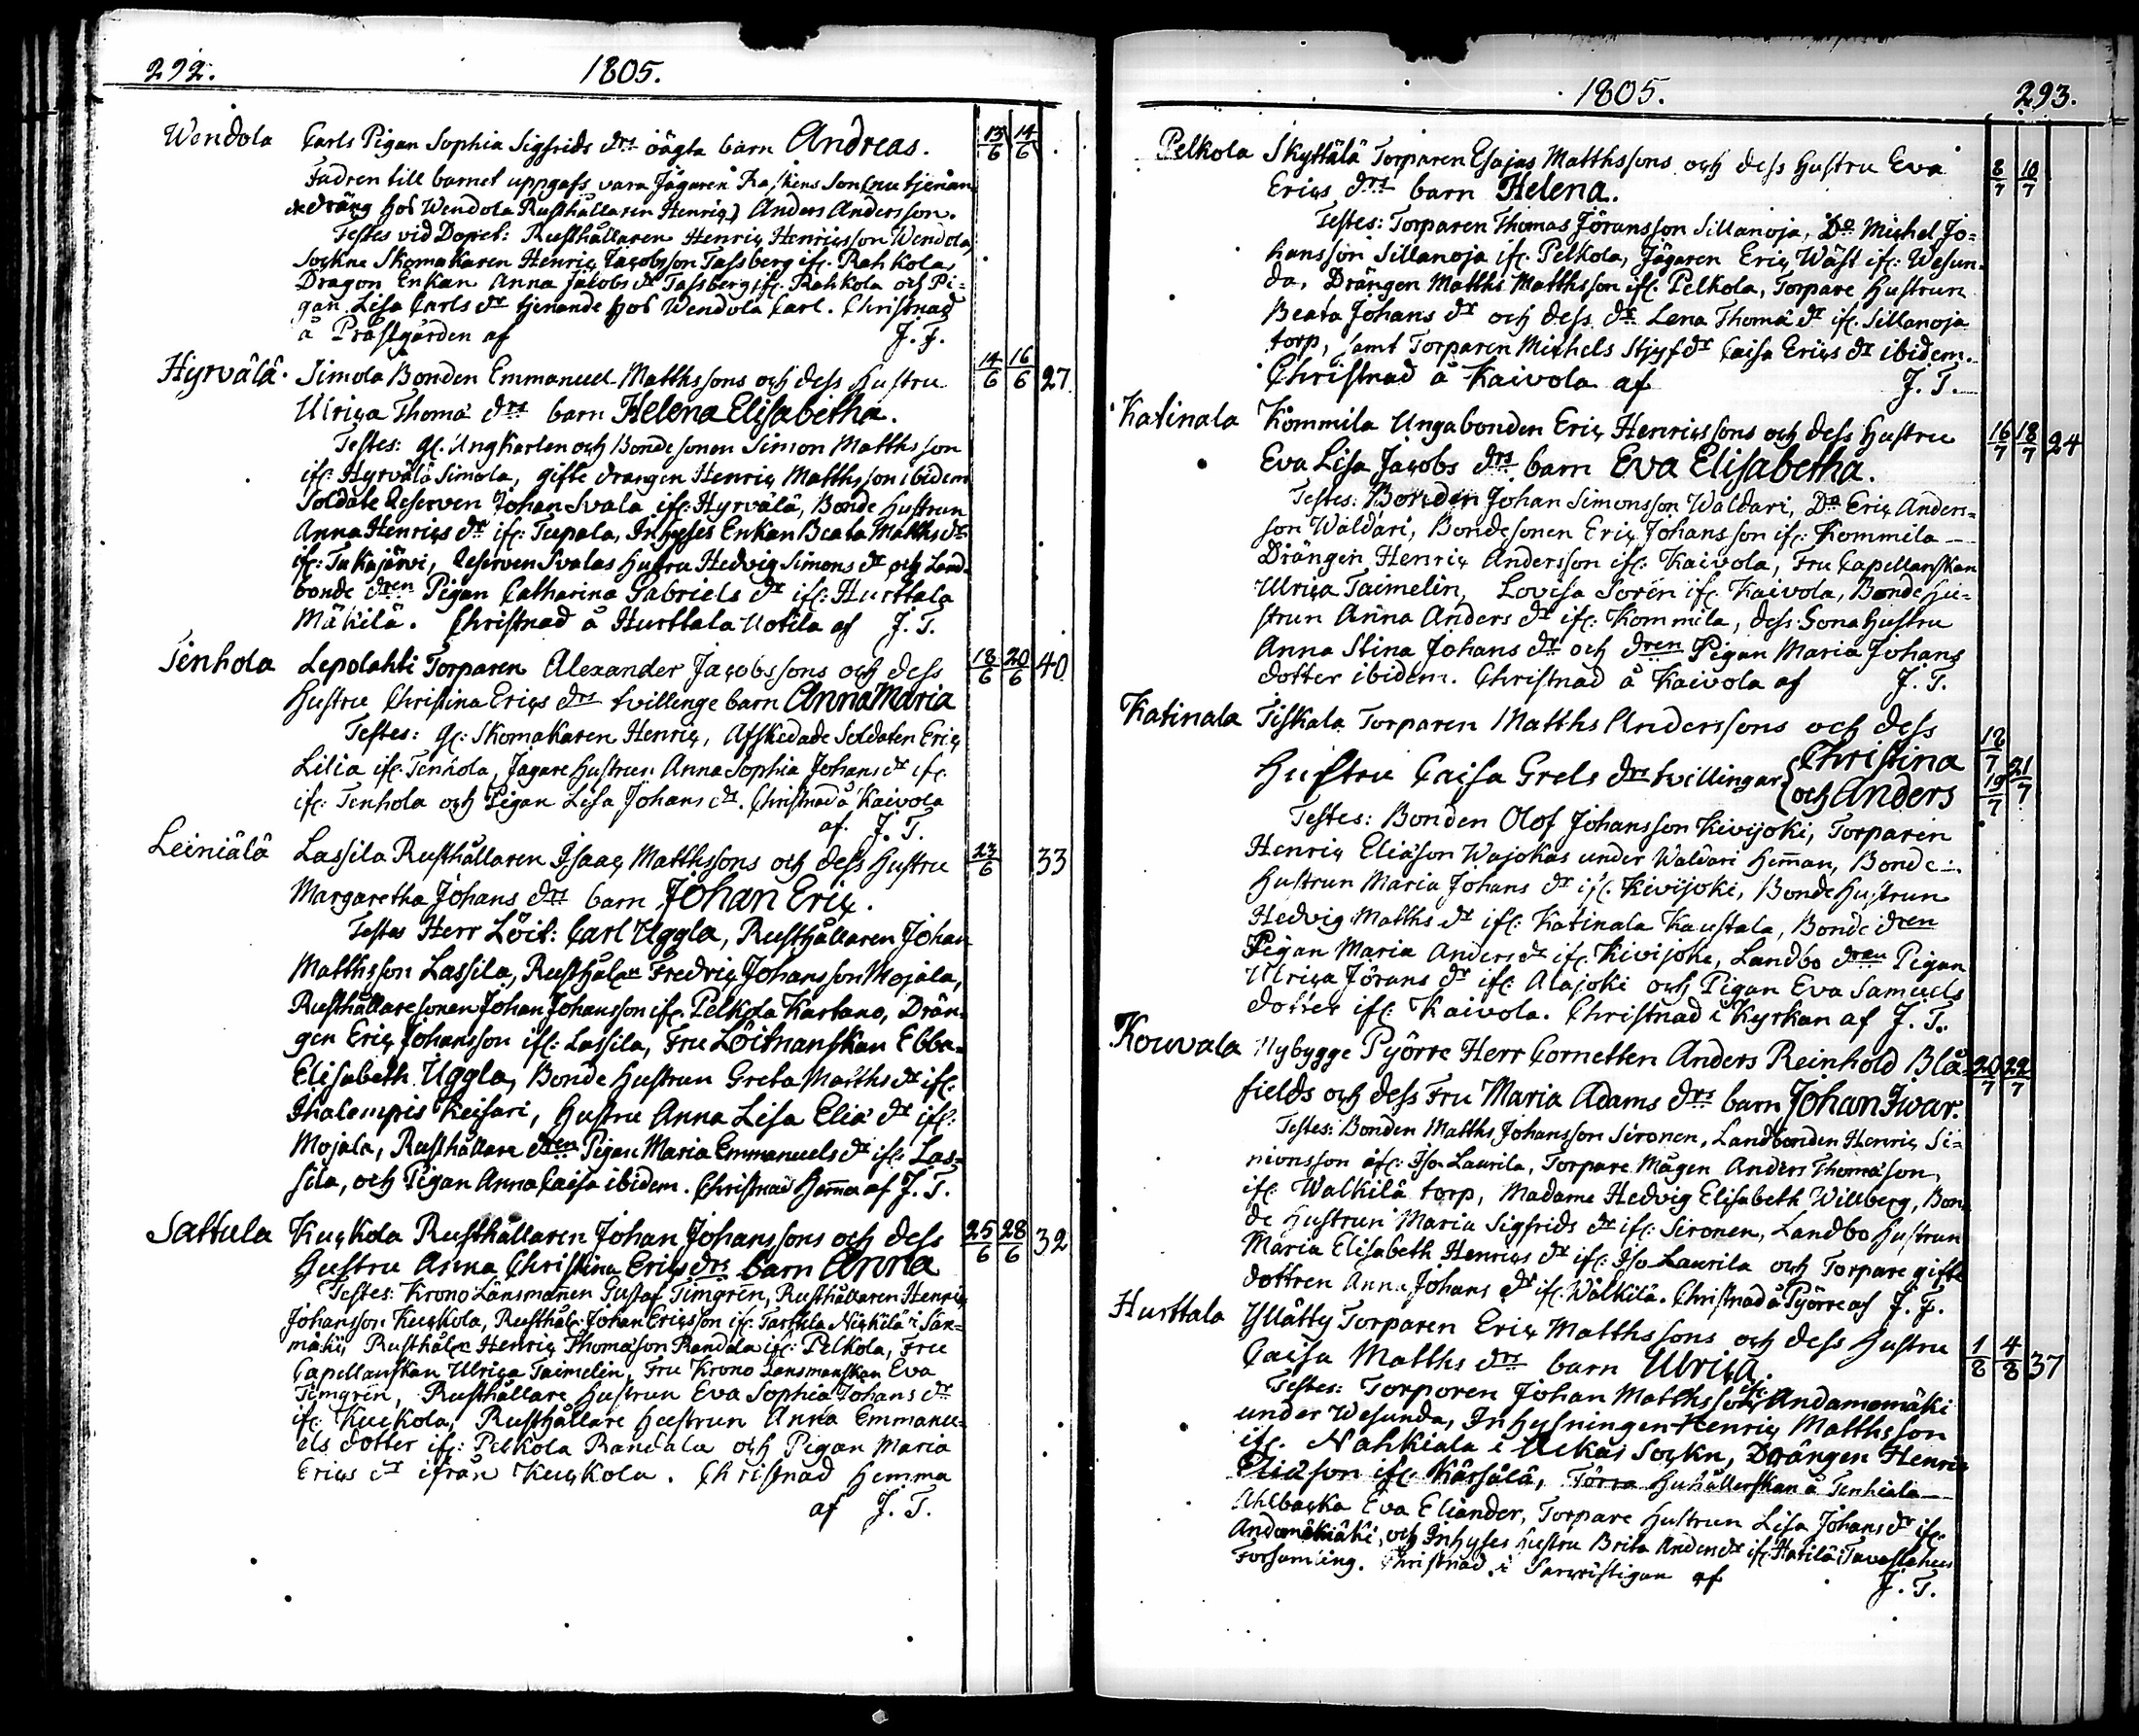 292. 1805.
Wendola Carls Pigan Sophia Sigfrids drs oägta barn Andreas. 13/6 14/6
Fadren till barnet uppgafs vara Jägaren Raskens Son (nu tjenan
de dräng hos Wendola Rusthållaren Henric) Anders Andersson.
Testes vid Dopet: Rusthållaren Henric Henricsson Wendola,
Sockne Skomakaren Henric Jacobsson Tassberg ifr. Rahkola,
Dragon Enkan Anna Jacobs dr Tassberg ifr. Rahkola och Pi=
gan Lisa Carls dr tjenande hos Wendola Carl. Christnad
å Prästgården af J. T.
Hyrvälä. Simola Bonden Emmanuel Matthssons och dess hustru 14/6 16/6 27
Ulrica Thomæ drs barn Helena Elisabetha.
Testes: gl. Ungkarlen och Bondesonen Simon Matthsson
ifr: Hyrvälä Simola, gifte drängen Henric Matthsson ibidem
Soldate Reserven Johan Svala ifr: Hyrvälä, Bonde Hustrun
Anna Henrics dr ifr: Tupala, Inhyses Enkan Beata Matths dr
ifr: Takajärvi, Reserven Svalas hustru Hedvig Simons dr och Land=
bonde dren Pigan Catharina Gabriels dr ifr: Hurttala
Mäkilä. Christnad å Hurttala Uotila af J. T.
Tenhola Lepolahti Torparen Alexander Jacobssons och dess 18/6 20/6 40
Hustru Christina Erics drs tvillinge barn Anna Maria
Testes: gl: Skomakaren Henric, Afskedade Soldaten Eric
Lilia ifr. Tenhola, Jägare Hustrun Anna Sophia Johans dr ifr.
ifr: Tenhola och Pigan Lisa Johans dr. Christnad å Kaivola
af J. T.
Leiniälä Lassila Rusthållaren Isaac Matthssons och dess hustru 23/6 33
Margaretha Johans drs barn Johan Eric.
Testes Herr Löit: Carl Uggla, Rusthållaren Johan
Matthsson Lassila, Rusthålen Fredric Johansson Mojala,
Rusthållaresonen Johan Johansson ifr. Pelkola Kartano, Drän=
gen Eric Johansson ifr: Lassila, Fru Löitnanskan Ebba
Elisabeth Uggla, Bonde Hustrun Greta Matths dr ifr.
Ihalempis Keisari, Hustru Anna Lisa Eliæ dr ifr:
Mojala, Rusthållare dren Pigan Maria Emmanuels dr ifr: Las=
sila, och Pigan Anna Caisa ibidem. Christnad Hema af J. T.
Sattula Kuckola Rusthållaren Johan Johanssons och dess 25/6 28/6 32
Hustru Anna Christina Erics drs barn Anna
Testes: Krono Länsmanen Gustaf Timgrén, Rusthållaren Henric
Johansson Kuckola, Rusthål: Johan Ericsson ifr: Nickilä i Sär=
mäki, Rusthålen Henric Thomæson Randala ifr: Pelkola, Fru
Capellanskan Ulrica Taimelin, Fru Krono Länsmanskan Eva
Timgrén, Rusthållare Hustrun Eva Sophia Johans dr
ifr Kuckola, Rusthållare Hustrun Anna Emmanu=
els dotter ifr: Pelkola Randala och Pigan Maria
Erics dr ifrån Kuckola. Christnad Hemma
af J. T.
1805. 293.
Pelkola Skyttälä Torparen Esajas Matthssons och dess Hustru Eva 8/7 10/7
Erics drs barn Helena.
Testes: Torparen Thomas Jöransson Sillanoja, Do Michel Jo=
hansson Sillanoja ifr. Pelkola, Jägaren Eric Wäst ifr: Wesun=
da, Drängen Matths Matthsson ifr. Pelkola, Torpare Hustrun
Beata Johans dr och dess dr Lena Thomæ dr ifr. Sillanoja
torp, samt Torparen Michels Stjyfdr Caisa Erics dr ibidem.
Christnad å Kaivola af J. T.
Katinala Kommila Ungabonden Eric Henricssons och dess Hustru 16/7 18/7 24
Eva Lisa Jacobs drs barn Eva Elisabetha.
Testes: Bonden Johan Simonsson Waldari, Do Eric Anders=
son Waldari, Bondesonen Eric Johansson ifr. Kommila
Drängen Henric Andersson ifr: Kaivola, Fru Capellanskan
Ulrica Taimelin, Lovisa Sorén ifr. Kaivola, Bonde Hu=
strun Anna Anders dr ifr: Kommila, dess Sonahustru
Anna Stina Johans dr och dren Pigan Maria Johans
dotter ibidem. Christnad å Kaivola af J. T.
Katinala Tiskala Torparen Matths Anderssons och dess
Hustru Caisa Grels drs tvillingar Christina och Anders 18/7 19/7 21/7
Testes: Bonden Olof Johansson Kivijoki, Torparen
Henric Eliæson Wajokas under Waldari Heman, Bonde=
Hustrun Maria Johans dr ifr. Kivijoki, Bonde Hustrun
Hedvig Matths dr ifr: Katinala Kaustala, Bonde dren
Pigan Maria Anders dr ifr. Kivijoki, Landbo dren Pigan
Ulrica Jörans dr ifr: Alajoki och Pigan Eva Samuels
dotter ifr: Kaivola. Christnad i Kyrkan af J. T.
Kouvala Nybygge Pyörre Herr Cornetten Anders Reinhold Blå= 20/7 22/7
fields och dess Fru Maria Adams drs barn Johan Iwar.
Testes: Bonden Matths Johansson Sironen, Landbonden Henric Si=
monsson ifr: Iso Laurila, Torpare Mågen Anders Thomæson
ifr Walkilä torp, Madame Hedvig Elisabeth Willberg, Bon=
de Hustrun Maria Sigfrids dr ifr: Sironen, Landbo hustrun
Maria Elisabeth Henrics dr ifr: Iso Laurila och Torpare gifte
dottren Anna Johans dr ifr. Walkilä. Christnad å Pyörre af J. T.
Hurttala Yllätty Torparen Eric Matthssons och dess hustru 1/8 4/8 37
Caisa Matths drs barn Ulrica.
Testes: Torparen Johan Matthsson ifr. Andamomäki
under Wesunda, Inhysningen Henric Matthsson
ifr. Nahkiala i Sockn, Drängen Henric
Eliæson ifr Kärsälä, Förra Hushållerskan å Tenhiala
Ahlbacka Eva Eliander, Torpare Hustrun Lisa Johans dr ifr.
och Inhyses hustru Brita Anders dr ifr: Hatilä i Tavastehus
Församling. Christnad i af J. T.